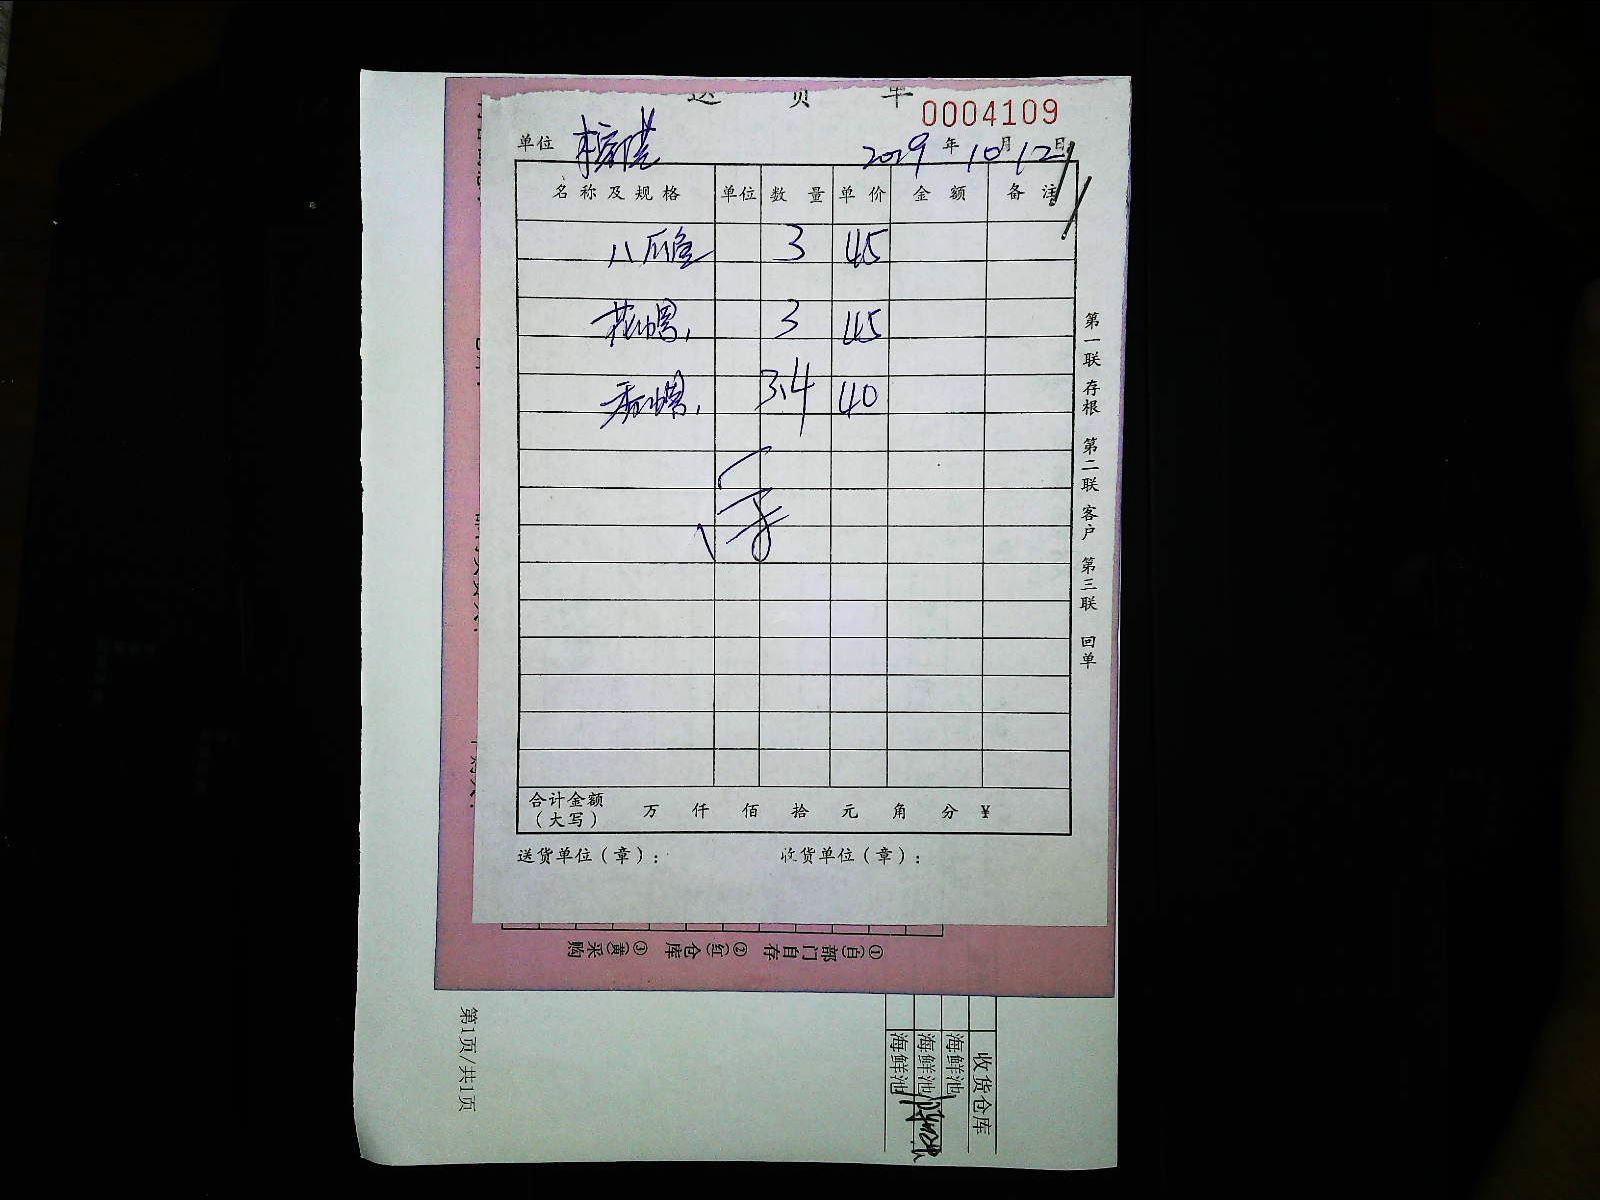 送货单
0004109
单位 2019年10月12日
名称及规格 单位 数量 单价 金额 备注
八爪鱼 3 45
花螺 3 45
香螺 3.4 40
第一联 存根 第二联 客户 第三联 回单
合计金额（大写） 万 仟 佰 拾 元 角 分 ¥
送货单位（章）： 收货单位（章）：
①(白)部门自存 ②(红)仓库 ③(黄)采购
第1页/共1页
收货仓库
海鲜池
海鲜池
海鲜池